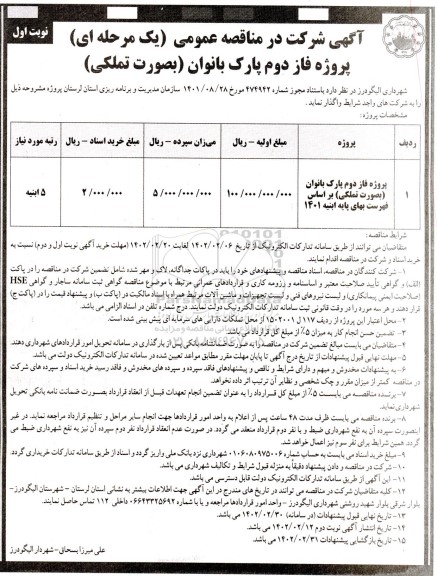 نوبت اول
آگهی شرکت در مناقصه عمومی (یک مرحله ای)
پروژه فاز دوم پارک بانوان (بصورت تملکی)
شهرداری الیگودرز در نظر دارد باستناد مجوز شماره ۴۷۴۹۴۲ مورخ ۱۴۰۱/۰۸/۲۸ سازمان مدیریت و برنامه ریزی استان لرستان پروژه مشروحه ذیل
را به شرکت های واجد شرایط واگذار نماید.
مشخصات پروژه:
ردیف پروژه مبلغ اولیه – ریال میزان سپرده – ریال مبلغ خرید اسناد – ریال رتبه مورد نیاز
۱ پروژه فاز دوم پارک بانوان (بصورت تملکی) بر اساس فهرست بهای پایه ابنیه ۱۴۰۱ ۱۰۰/۰۰۰/۰۰۰/۰۰۰ ۵/۰۰۰/۰۰۰/۰۰۰ ۲/۰۰۰/۰۰۰ ۵ ابنیه
شرایط مناقصه:
متقاضیان می توانند از طریق سامانه تدارکات الکترونیک از تاریخ ۱۴۰۲/۰۲/۰۶ لغایت ۱۴۰۲/۰۲/۲۰ (مهلت خرید آگهی نوبت اول و دوم) نسبت به
خرید اسناد و شرکت در مناقصه اقدام نمایند.
۱- شرکت کنندگان در مناقصه، اسناد مناقصه و پیشنهادهای خود را باید در پاکات جداگانه، لاک و مهر شده شامل تضمین شرکت در مناقصه را در پاکت
(الف) و گواهی تأیید صلاحیت معتبر و اساسنامه و رزومه کاری و قراردادهای عمرانی مرتبط با موضوع مناقصه گواهی ثبت سامانه ساجار و گواهی HSE
(صلاحیت ایمنی پیمانکاری) و لیست نیروهای فنی و لیست تجهیزات و ماشین آلات مرتبط همراه با اسناد مالکیت در (پاکت ب) و پیشنهاد قیمت را در (پاکت ج)
قرار دهند و هر سه مورد را در وقت قانونی ثبت سامانه تدارکات الکترونیک دولت نمایند. درج شماره تلفن در اسناد الزامی می باشد.
۲- محل اعتبار این پروژه از ردیف ۱۱۷ ل ۱۵۰۲۰۰۱ از محل تملکات دارائی های سرمایه ای پیش بینی شده است.
۳- تضمین حسن انجام کار به میزان ۵٪ از مبلغ کل قرارداد می باشد.
۴- متقاضیان می بایست مبالغ تضمین شرکت در مناقصه را به صورت ضمانتنامه بانکی پس از بارگذاری در سامانه تحویل امور قراردادهای شهرداری دهند.
۵- مهلت نهایی قبول پیشنهادات از تاریخ درج آگهی تا پایان مهلت مقرر مطابق مواعد تعیین شده در سامانه تدارکات الکترونیک دولت می باشد.
۶- به پیشنهادات مخدوش و مبهم و دارای شرایط و ناقص و پیشنهادهای فاقد سپرده و سپرده های مخدوش و فاقد رسید خرید اسناد و سپرده های شرکت
در مناقصه کمتر از میزان مقرر و چک شخصی و نظایر آن ترتیب اثر داده نخواهد.
۷- برنده مناقصه می بایست ۵٪ از مبلغ کل قرارداد را به عنوان تضمین انجام تعهدات قبل از انعقاد قرارداد بصورت ضمانت نامه بانکی تحویل
شهرداری نماید.
۸- برنده مناقصه می بایست ظرف مدت ۴۸ ساعت پس از اعلام به واحد امور قراردادها جهت انجام سایر مراحل و تنظیم قرارداد مراجعه نماید. در غیر
اینصورت سپرده آن به نفع شهرداری ضبط و با نفر دوم قرارداد منعقد می گردد. در صورت عدم انعقاد قرارداد نفر دوم سپرده آن نیز به نفع شهرداری ضبط می
گردد. همین شرایط برای نفر سوم نیز اعمال خواهد شد.
۹- مبلغ خرید اسناد می بایست به حساب شماره ۰۱۰۶۰۸۰۹۷۵۰۰۶ شهرداری نزد بانک ملی واریز گردد و اسناد از طریق سامانه تدارکات خریداری گردد.
۱۰- شرکت در مناقصه و دادن پیشنهاد دقیقاً به منزله قبول شرایط و تکالیف شهرداری می باشد.
۱۱- این آگهی از طریق سامانه تدارکات الکترونیک دولت قابل دسترسی می باشد.
۱۲- کلیه متقاضیان شرکت در مناقصه می توانند در تاریخ های مندرج در این آگهی جهت اطلاعات بیشتر به نشانی استان لرستان – شهرستان الیگودرز–
بلوار شرقی بلوار شهید روشنی شهرداری الیگودرز – واحد امور قراردادها مراجعه و یا با شماره ۰۶۶۴۳۳۲۵۶۹۲ داخلی ۱۱۲ تماس حاصل نمایند.
۱۳- تاریخ نهایی قبول پیشنهادات (در سامانه) ۱۴۰۲/۰۲/۳۰ می باشد.
۱۴- تاریخ انتشار آگهی نوبت دوم ۱۴۰۲/۰۲/۱۲ می باشد.
۱۵- تاریخ بازگشایی پیشنهادات ۱۴۰۲/۰۲/۳۱ می باشد.
علی میرزا بسحاق – شهردار الیگودرز